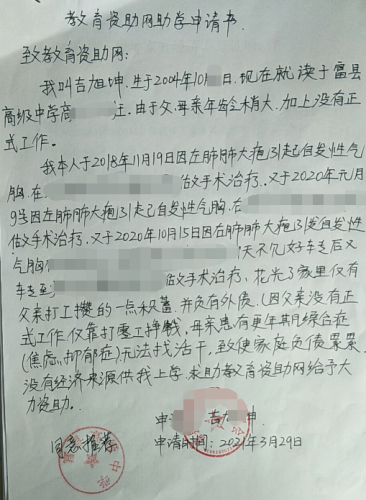 教育资助网助学申请书
致教育资助网:
我叫吉旭坤,生于2004年10 日,现在就读于富县
高级中学高 班。由于父、母亲年龄稍大,加上没有正
式工作。
我本人于2018年11月19日因左肺肺大疱引起自发性气
胸,在 做手术治疗,又于2020年元月
9号因左肺肺大疱引起自发性气胸,在
做手术治疗,又于2020年10月15日因左肺肺大疱引发自发性
气胸 天不见好转后又
转至 做手术治疗,花光了家里仅有
父亲打工攒的一点积蓄,并负有外债(因父亲没有正
式工作仅靠打零工挣钱,母亲患有更年期综合症
(焦虑、抑郁症)无法找活干,致使家庭负债累累,
没有经济来源供我上学,求助教育资助网给予大
力资助。
申 吉 坤
同意推荐 申请时间:2021年3月29日